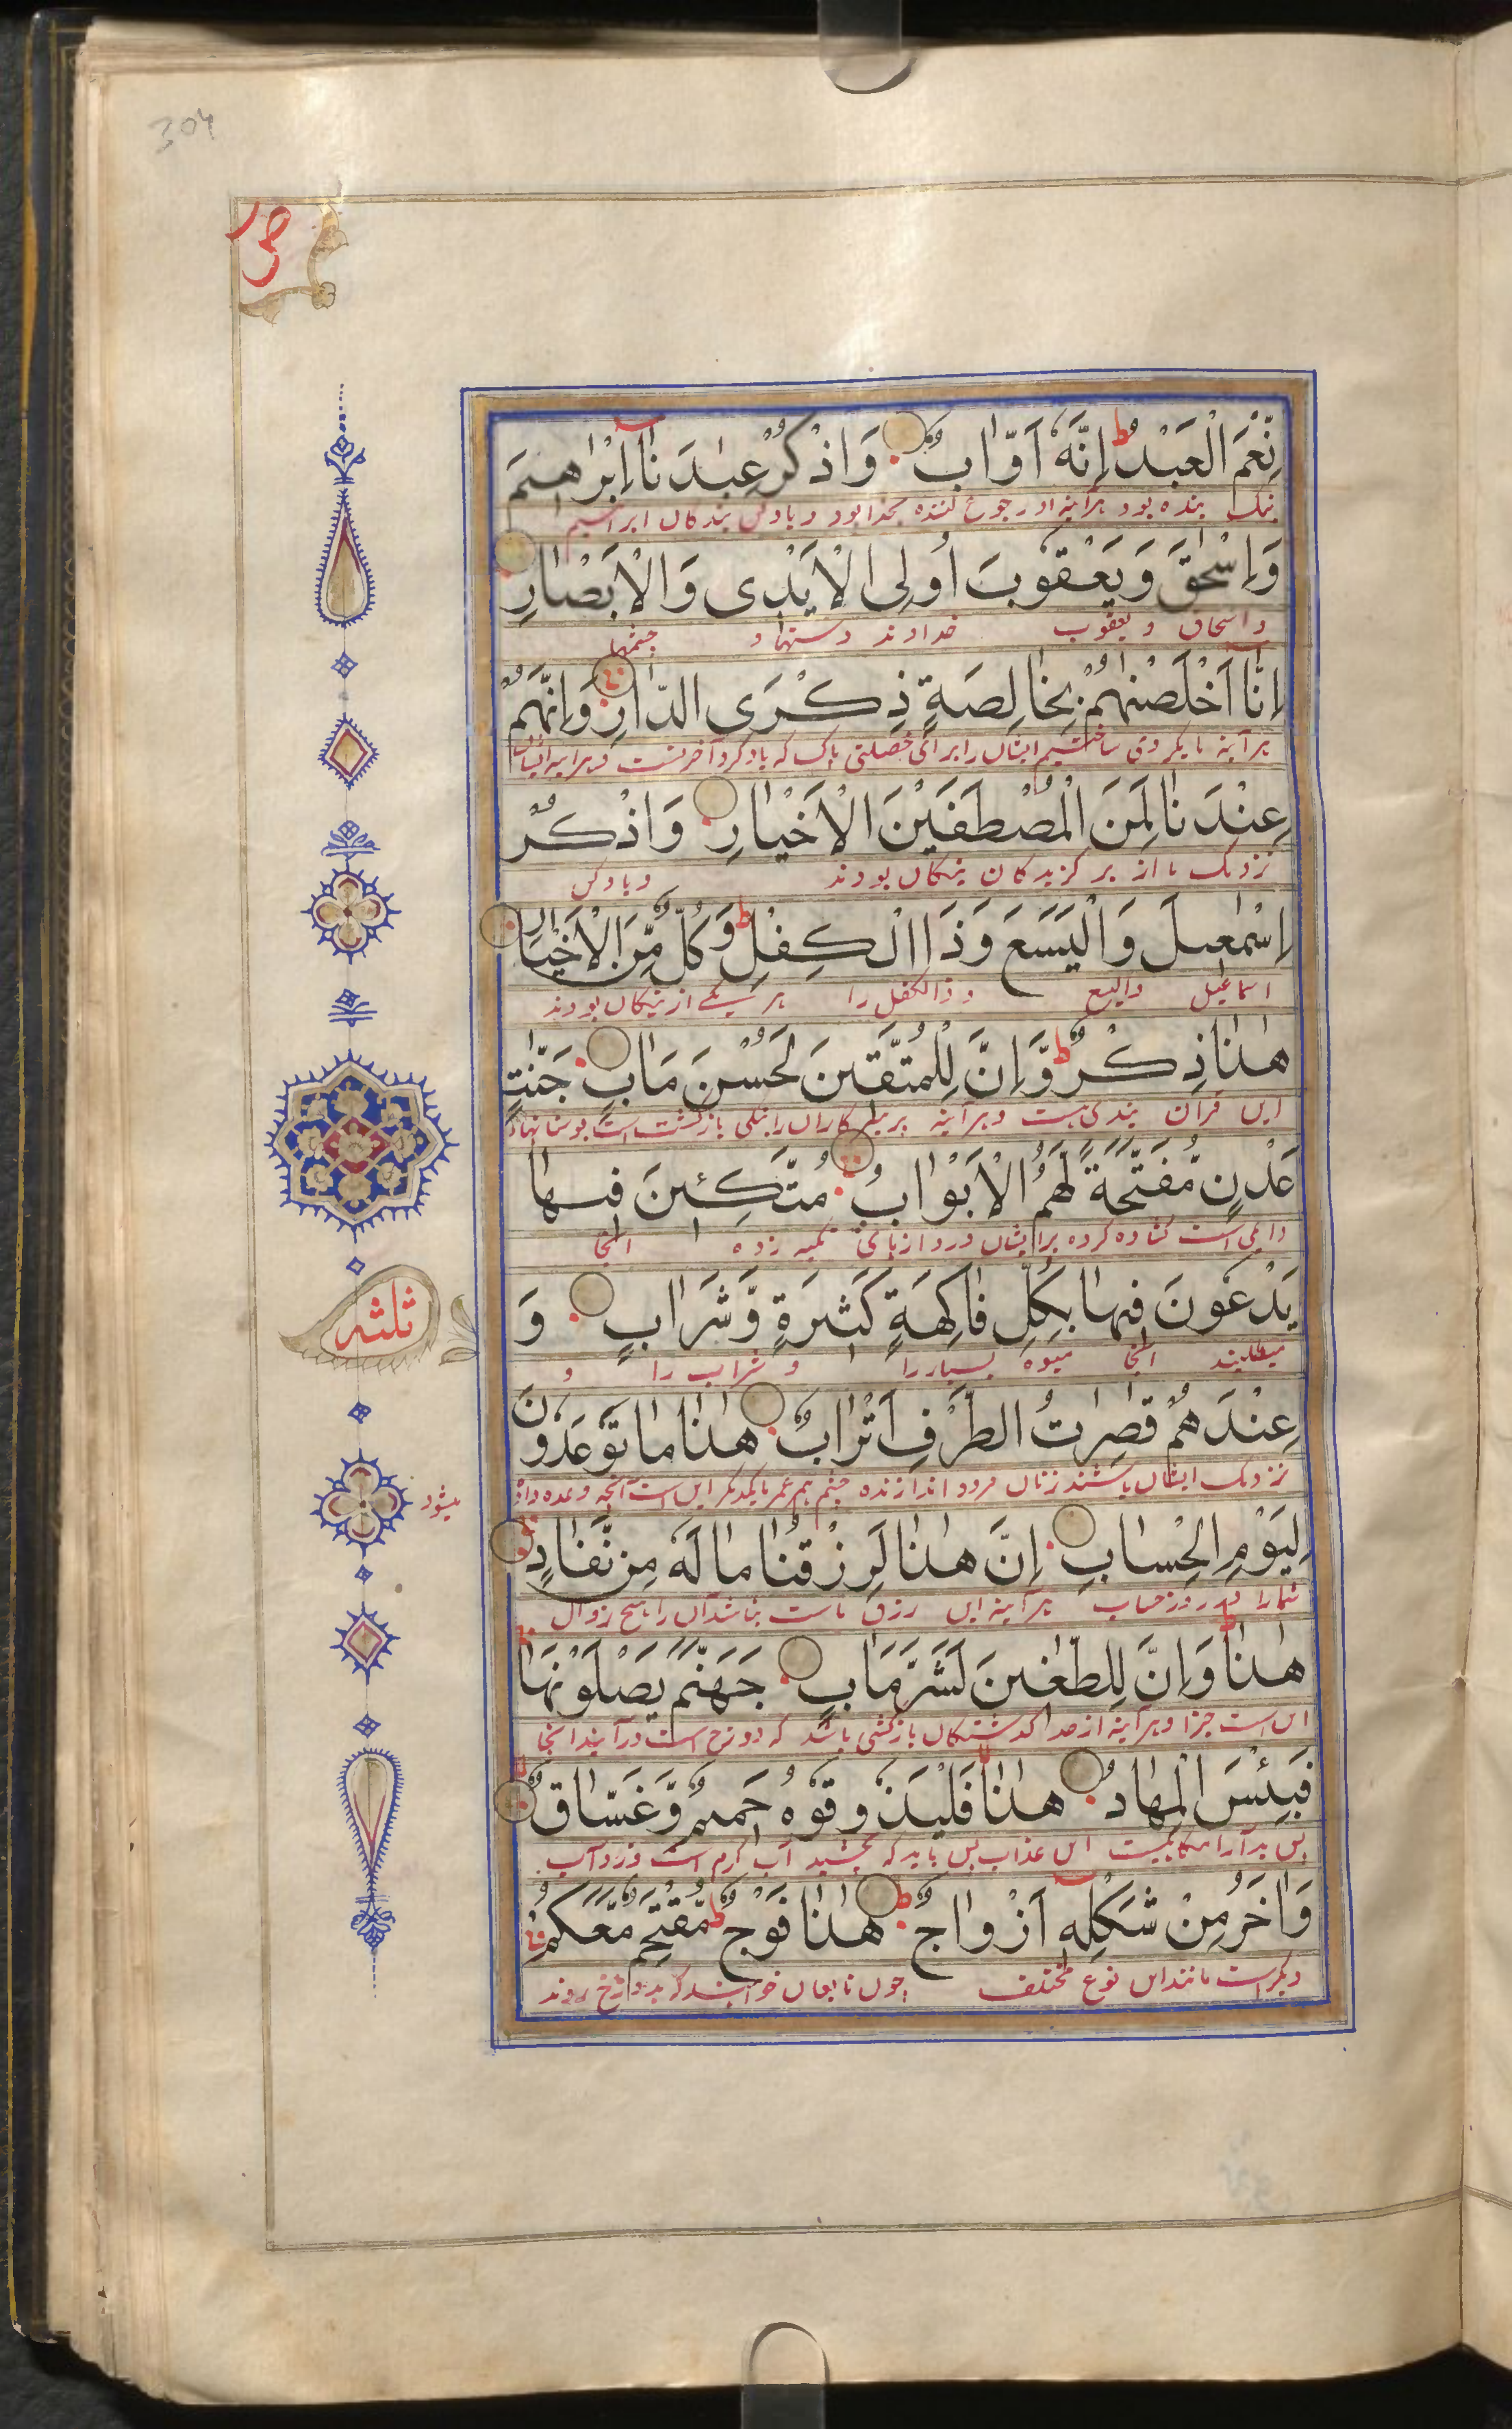 304
ص
نِّعْمَ الْعَبْدُ ط اِنَّهٗٓ اَوَّابٌ وَاذْكُرْ عِبٰدَنَآ اِبْرٰهِيْمَ
نیک بنده بود هرآینه او رجوع کننده بخدا بود و یاد کن بندگان ابراهیم
وَاِسْحٰقَ وَيَعْقُوْبَ اُولِى الْاَيْدِىْ وَالْاَبْصَارِ
و اسحاق و یعقوب خداوند دستها و چشمها
اِنَّآ اَخْلَصْنٰهُمْ بِخَالِصَةٍ ذِكْرَى الدَّارِ وَاِنَّهُمْ
هرآینه ما یکروی ساختیم ایشان را برای خصلتی پاک که یاد کرد آخرتست و هرآینه ایشان
عِنْدَنَا لَمِنَ الْمُصْطَفَيْنَ الْاَخْيَارِ وَاذْكُرْ
نزدیک ما از برگزیدگان نیکان بودند و یاد کن
اِسْمٰعِيْلَ وَالْيَسَعَ وَذَا الْكِفْلِ ط وَكُلٌّ مِّنَ الْاَخْيَارِ
اسماعیل والیسع و ذالکفل را هر یکے از نیکان بودند
هٰذَا ذِكْرٌ ط وَّاِنَّ لِلْمُتَّقِيْنَ لَحُسْنَ مَاٰبٍ جَنّٰتِ
این قرآن پندی هست و هرآینه پرهیزکاران را نیکی بازگشت است بوستانهاء
عَدْنٍ مُّفَتَّحَةً لَّهُمُ الْاَبْوَابُ مُتَّكِـِٕيْنَ فِيْهَا
دایمی است گشاده کرده برایشان دروازهائی تکیه زده آنجا
يَدْعُوْنَ فِيْهَا بِكُلِّ فَاكِهَةٍ كَثِيْرَةٍ وَّشَرَابٍ وَ
میطلبند آنجا میوه بسیار را و شراب را و
ثلثه
عِنْدَهُمْ قٰصِرٰتُ الطَّرْفِ اَتْرَابٌ هٰذَا مَا تُوْعَدُوْنَ
نزدیک ایشان باشند زنان فرود اندازنده چشم هم عمر بایکدیگر این است آنچه وعده داده
میشود
لِيَوْمِ الْحِسَابِ اِنَّ هٰذَا لَرِزْقُنَا مَا لَهٗ مِنْ نَّفَادٍ
شما را بروز حساب هرآینه این رزق ماست نباشد آن را هیچ زوال
هٰذَا ط وَاِنَّ لِلطّٰغِيْنَ لَشَرَّ مَاٰبٍ جَهَنَّمَ يَصْلَوْنَهَا
این است جزا و هرآینه از حد گذشتگان بازگشتی باشد که دوزخ است درآیند آنجا
فَبِئْسَ الْمِهَادُ هٰذَا فَلْيَذُوْقُوْهُ حَمِيْمٌ وَّغَسَّاقٌ
پس بد آرامگاهیست این عذاب پس باید که بچشید آب گرم است و زردآب
وَاٰخَرُ مِنْ شَكْلِهٖٓ اَزْوَاجٌ ط هٰذَا فَوْجٌ ط مُّقْتَحِمٌ مَّعَكُمْ
دیگر است مانند این نوع مختلف چون تابعان خواهند که بدوزخ روند